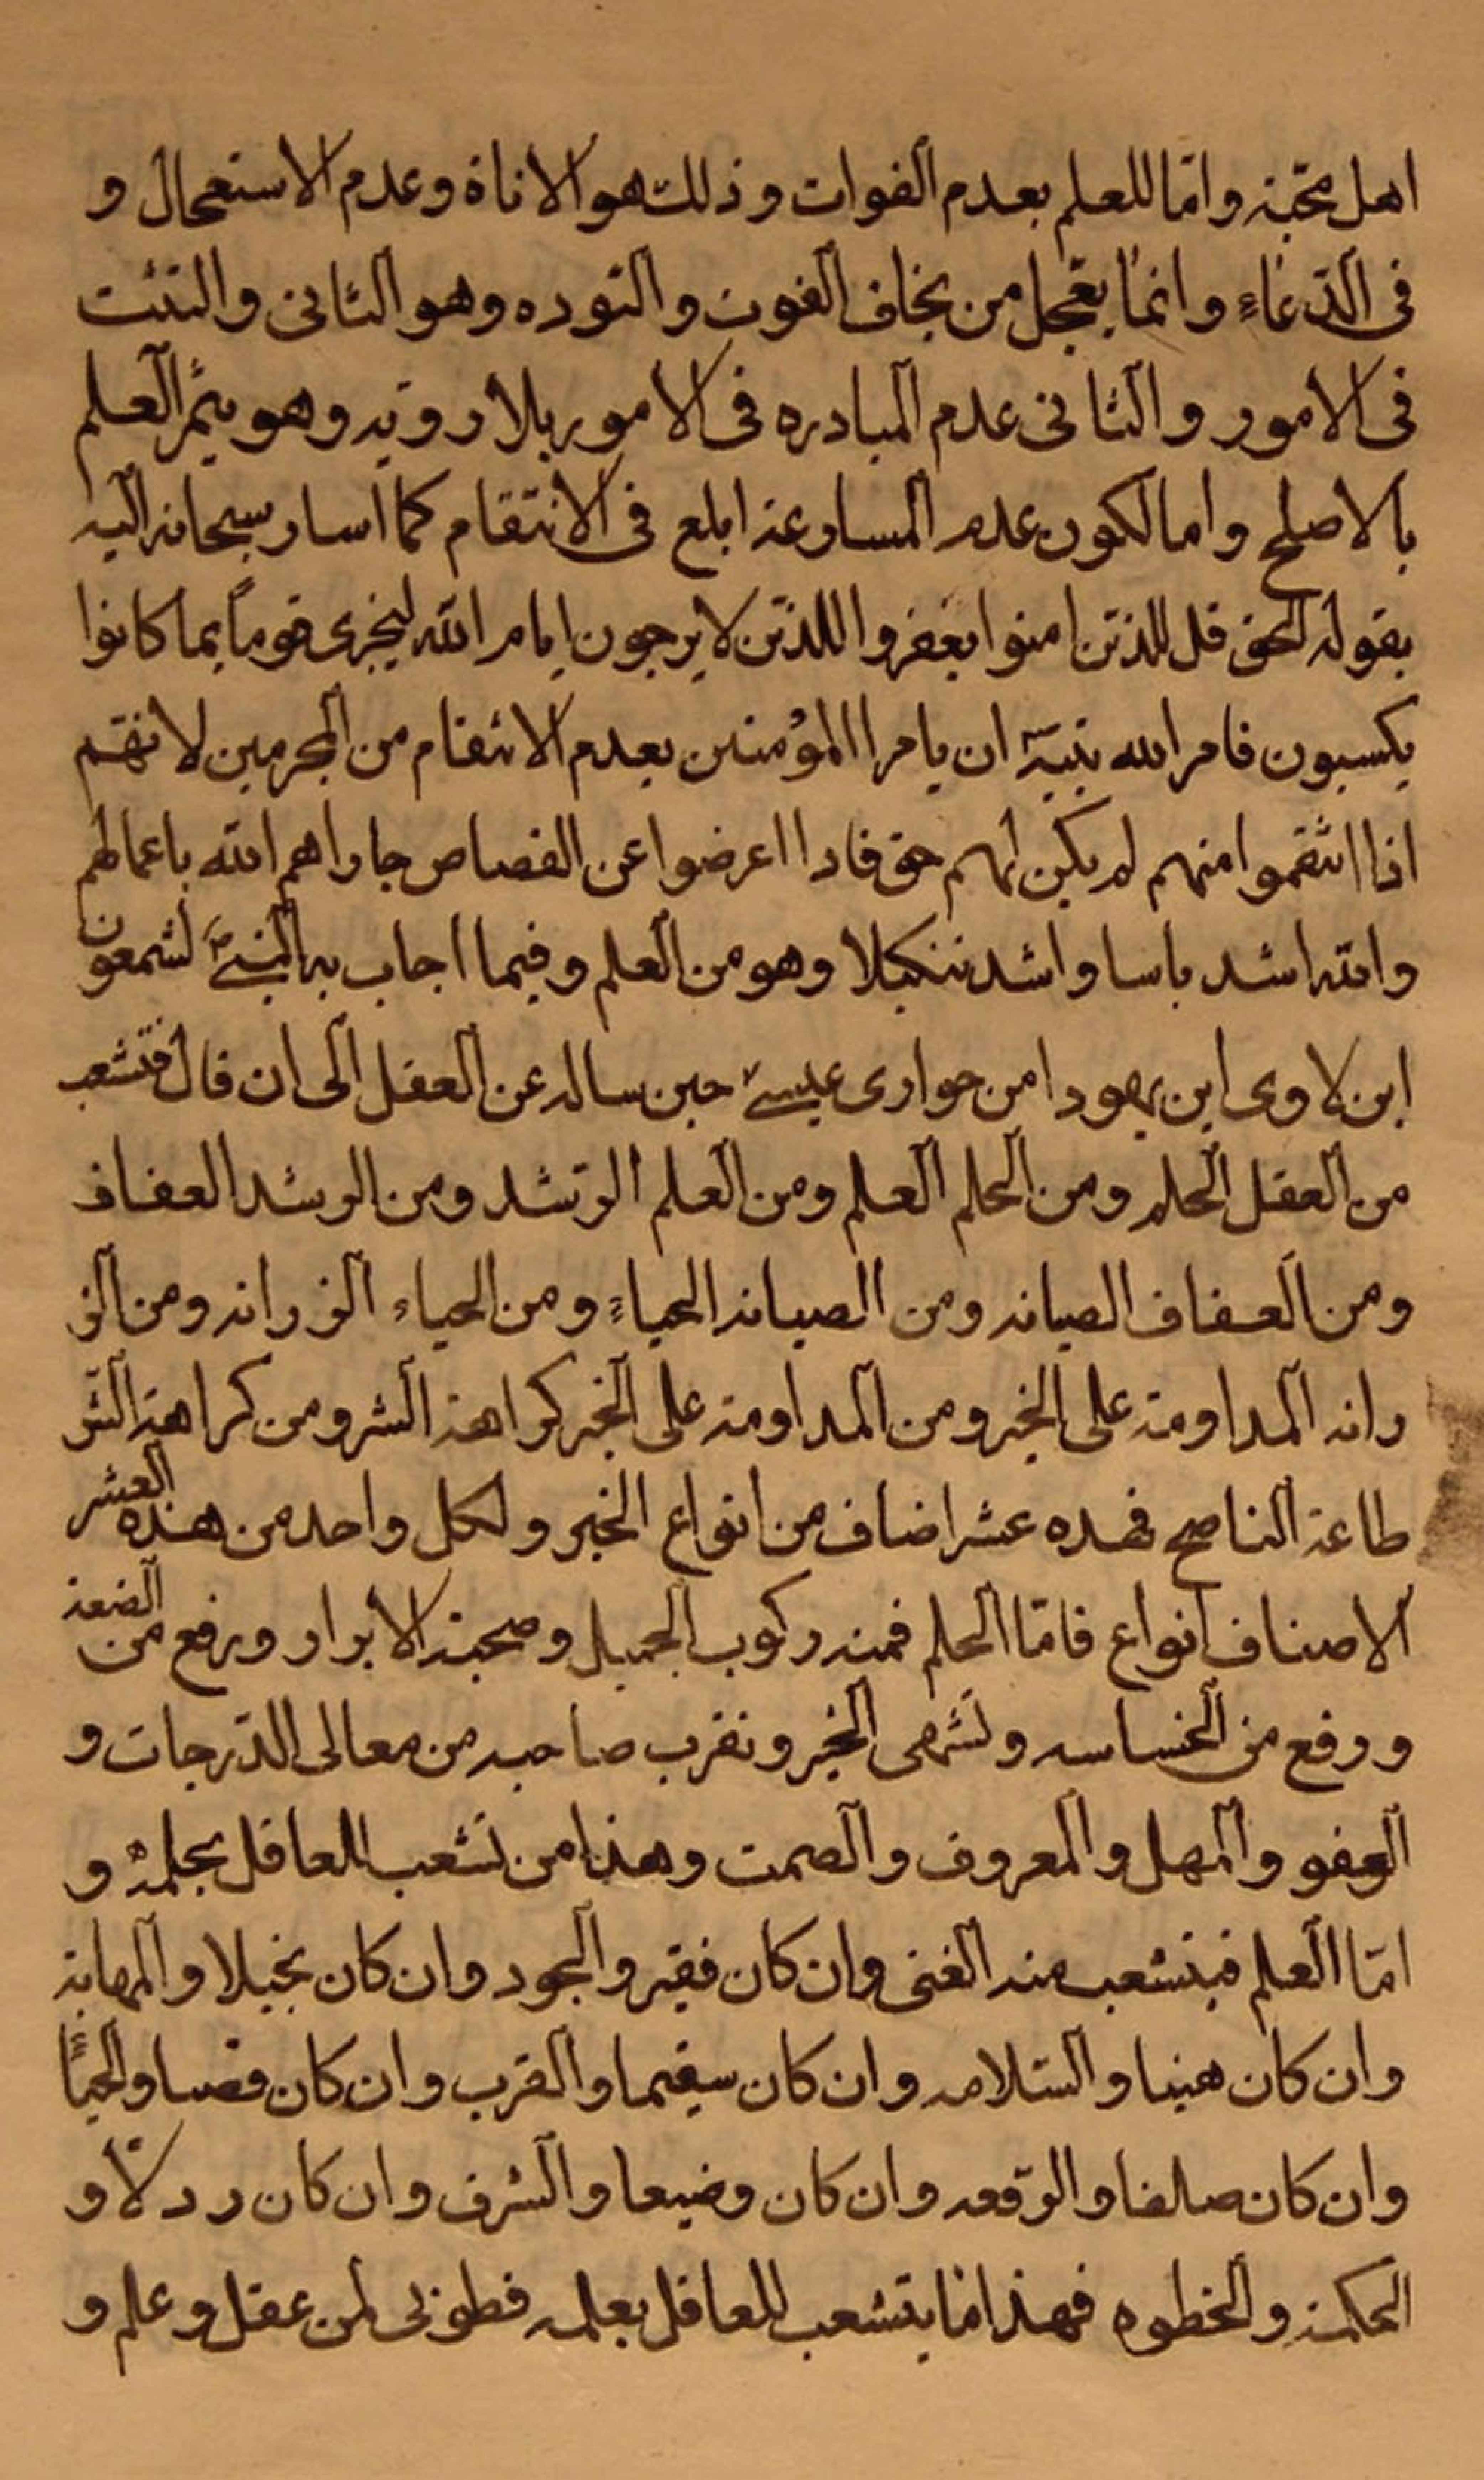 اهل محبته واما للعلم بعدم الفوات وذلك هو الاناة وعدم الاستعجال و
فى الدعاء وانما يعجل من يخاف الفوت والتوده وهو التانى والتثبت
فى الامور والتانى عدم المبادره فى الامور بلا رويه وهو يثمر العلم
بالاصلح واما لكون عدم المسارعة ابلغ فى الانتقام كما اسار سبحانه اليه
بقوله الحق قل للذين امنوا يغفروا للذين لا يرجون ايام الله ليجزى قوماً بما كانوا
يكسبون فامر الله نبيه ان يامر المؤمنين بعدم الانتقام من المجرمين لانهم
اذا انتقموا منهم لم يكن لهم حق فاذا اعرضوا عن القصاص جازاهم الله باعمالهم
والله اشد باسا واشد تنكيلا وهو من العلم وفيما اجاب به النبى لشمعون
ابن لاوى ابن يهودا من حوارى عيسى حين ساله عن العقل الى ان قال فتشعب
من العقل الحلم ومن الحلم العلم ومن العلم الرشد ومن الرشد العفاف
ومن العفاف الصيانه ومن الصيانه الحياء ومن الحياء الرزانه ومن الر
زانه المداومة على الخير ومن المداومة على الخير كراهة الشر ومن كراهة الشر
طاعة الناصح فهذه عشر اصناف من انواع الخير ولكل واحد من هذه العشر
الاصناف انواع فاما الحلم فمنه ركوب الجميل وصحبة الابرار ورفع من الضعة
ورفع من الخساسه وتشهى الخير وتقرب صاحبه من معالى الدرجات و
العفو والمهل والمعروف والصمت وهذا من تشعب للعاقل بحلمه و
اما العلم فيتشعب منه الغنى وان كان فقير والجود وان كان بخيلا والمهابة
وان كان هينا والسلامه وان كان سقيما والقرب وان كان قصيا والحياء
وان كان صلفا والرفعه وان كان وضيعا والشرف وان كان رذلا و
الحكمة والخطوه فهذا ما يتشعب للعاقل بعلمه فطوبى لمن عقل وعلم و